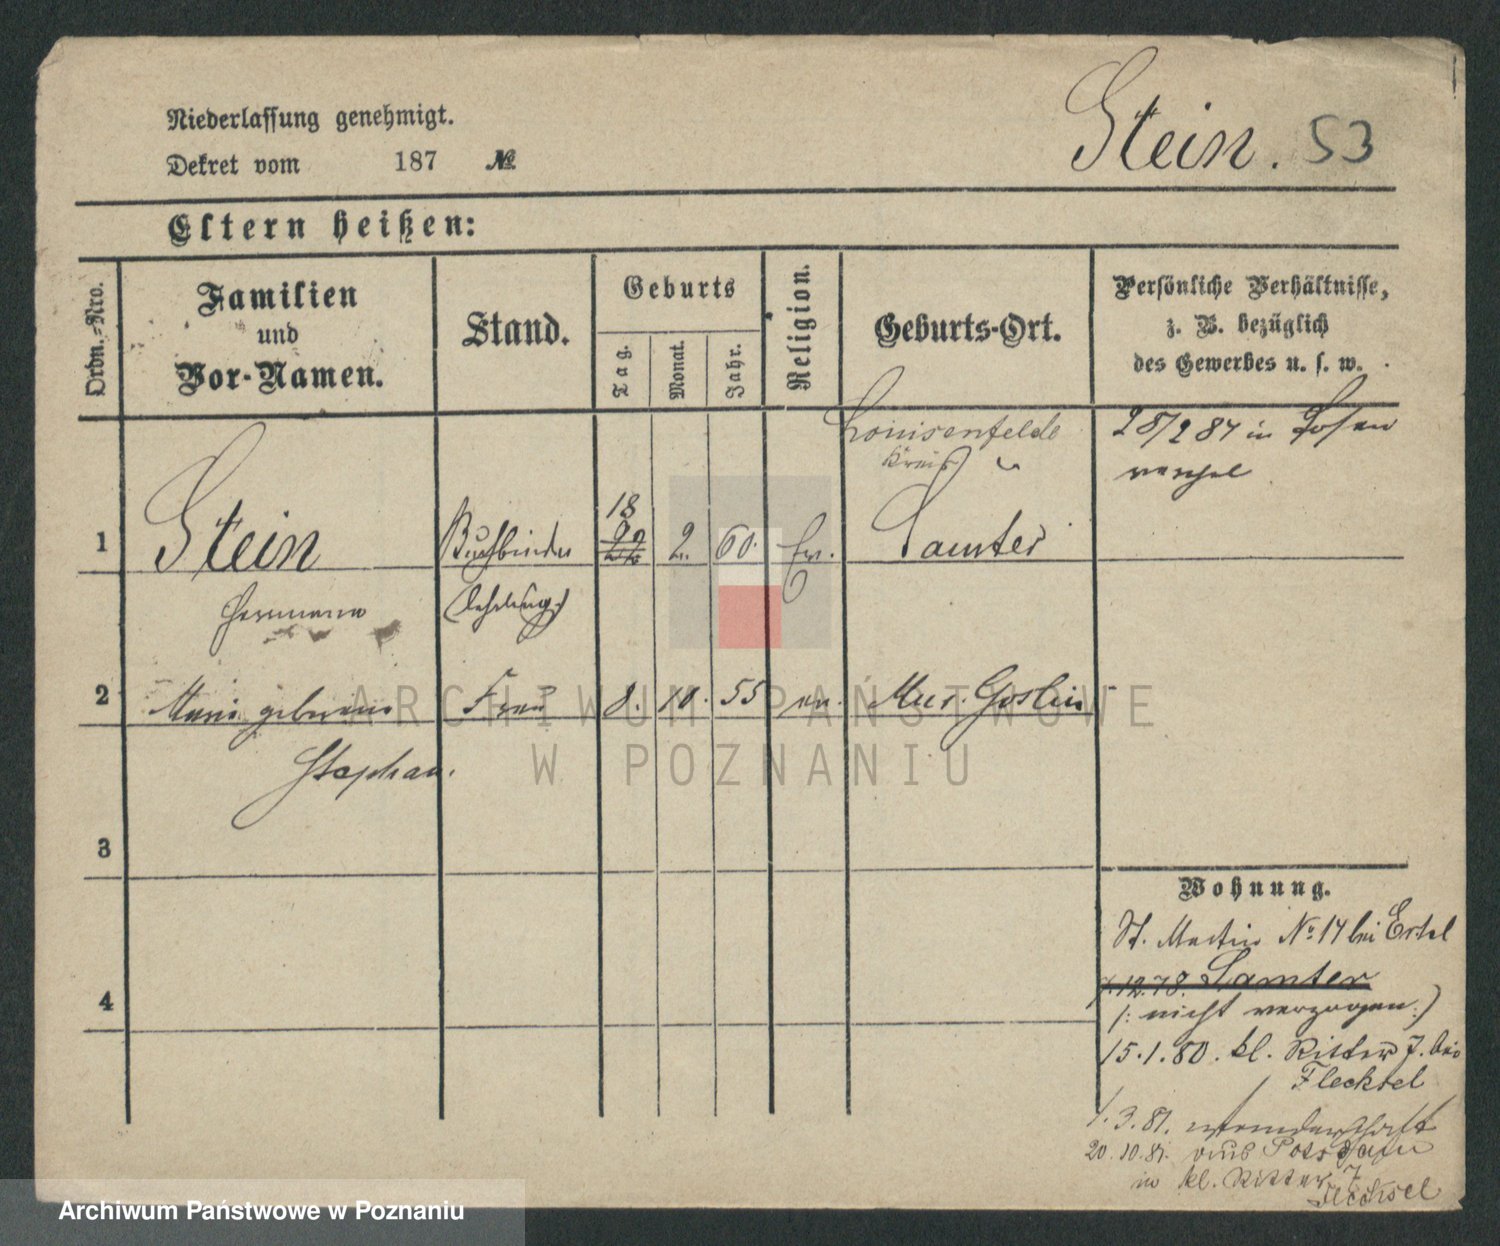 Niederlassung genehmigt.
Dekret vom 187 №
Stein. 53
Eltern heißen:
Ordn.-Nro.
Familien
und
Vor-Namen.
Stand.
Geburts
Tag.
Monat.
Jahr.
Religion.
Geburts-Ort.
Persönliche Verhältnisse,
z. B. bezüglich
des Gewerbes u. s. w.
1
Stein
Hermann
Buchbinder
18
22
2.
60.
ev.
Louisenfelde
Kreis
Samter
in Posen
2
geborene
Stephan.
Frau
8.
10.
55
ev.
Mur. Goslin
3
4
Wohnung.
St. Martin № 14 bei Ertel
1.12.78. Samter
(: nicht verzogen :)
15.1.80. kl. Ritter 7. bei
Flecksel
1.3.81.
20.10.81. aus Potsdam
in kl. Ritter 7
Flecksel
ARCHIWUM PAŃSTWOWE
W POZNANIU
Archiwum Państwowe w Poznaniu